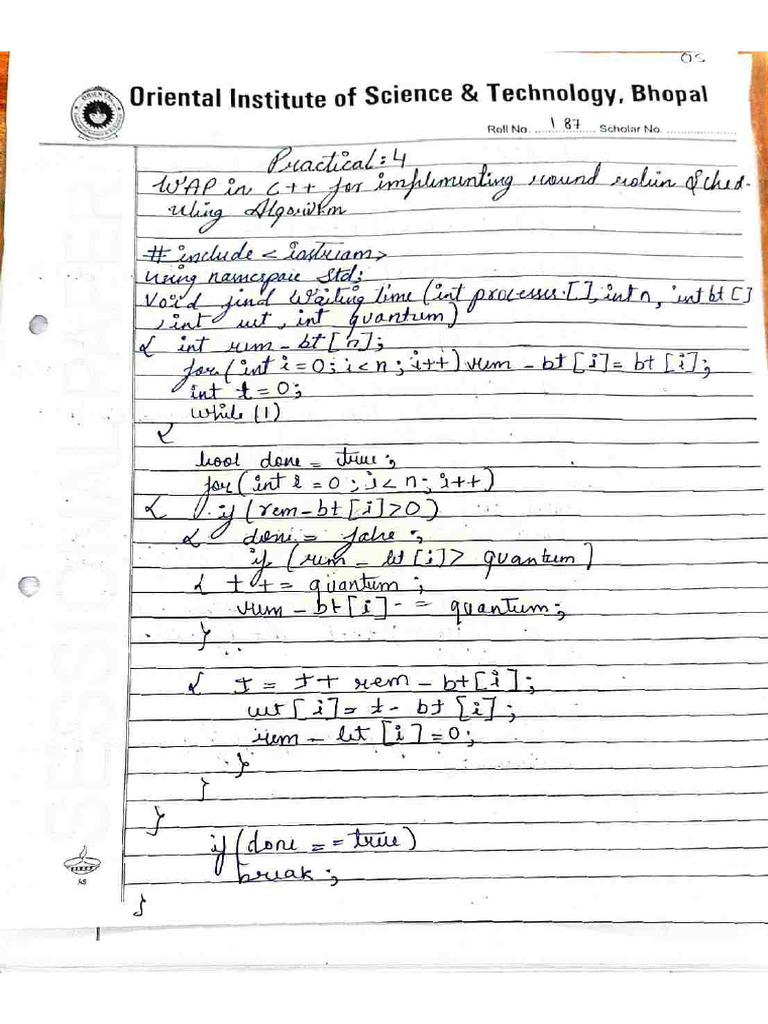 OS
Oriental Institute of Science & Technology, Bhopal
Roll No. 187 Scholar No.
Practical: 4
WAP in C++ for implementing round robin Sched-
uling Algorithm
# include <iostream>
using namespace Std;
Void find Waiting time (int processes [], int n, int bt []
, int wt, int quantum)
{ int rem - bt [n];
for (int i = 0; i < n; i++) rem - bt [i] = bt [i];
int t = 0;
while (1)
{
bool done = true;
for (int i = 0; i < n; i++)
{ if (rem - bt [i] > 0)
{ done = false;
if (rem - bt [i] > quantum)
{ t + = quantum;
rem - bt [i] - = quantum;
}
{ t = t + rem - bt [i];
wt [i] = t - bt [i];
rem - bt [i] = 0;
}
}
}
if (done = = true)
break;
}
SESSIONAL PAPER